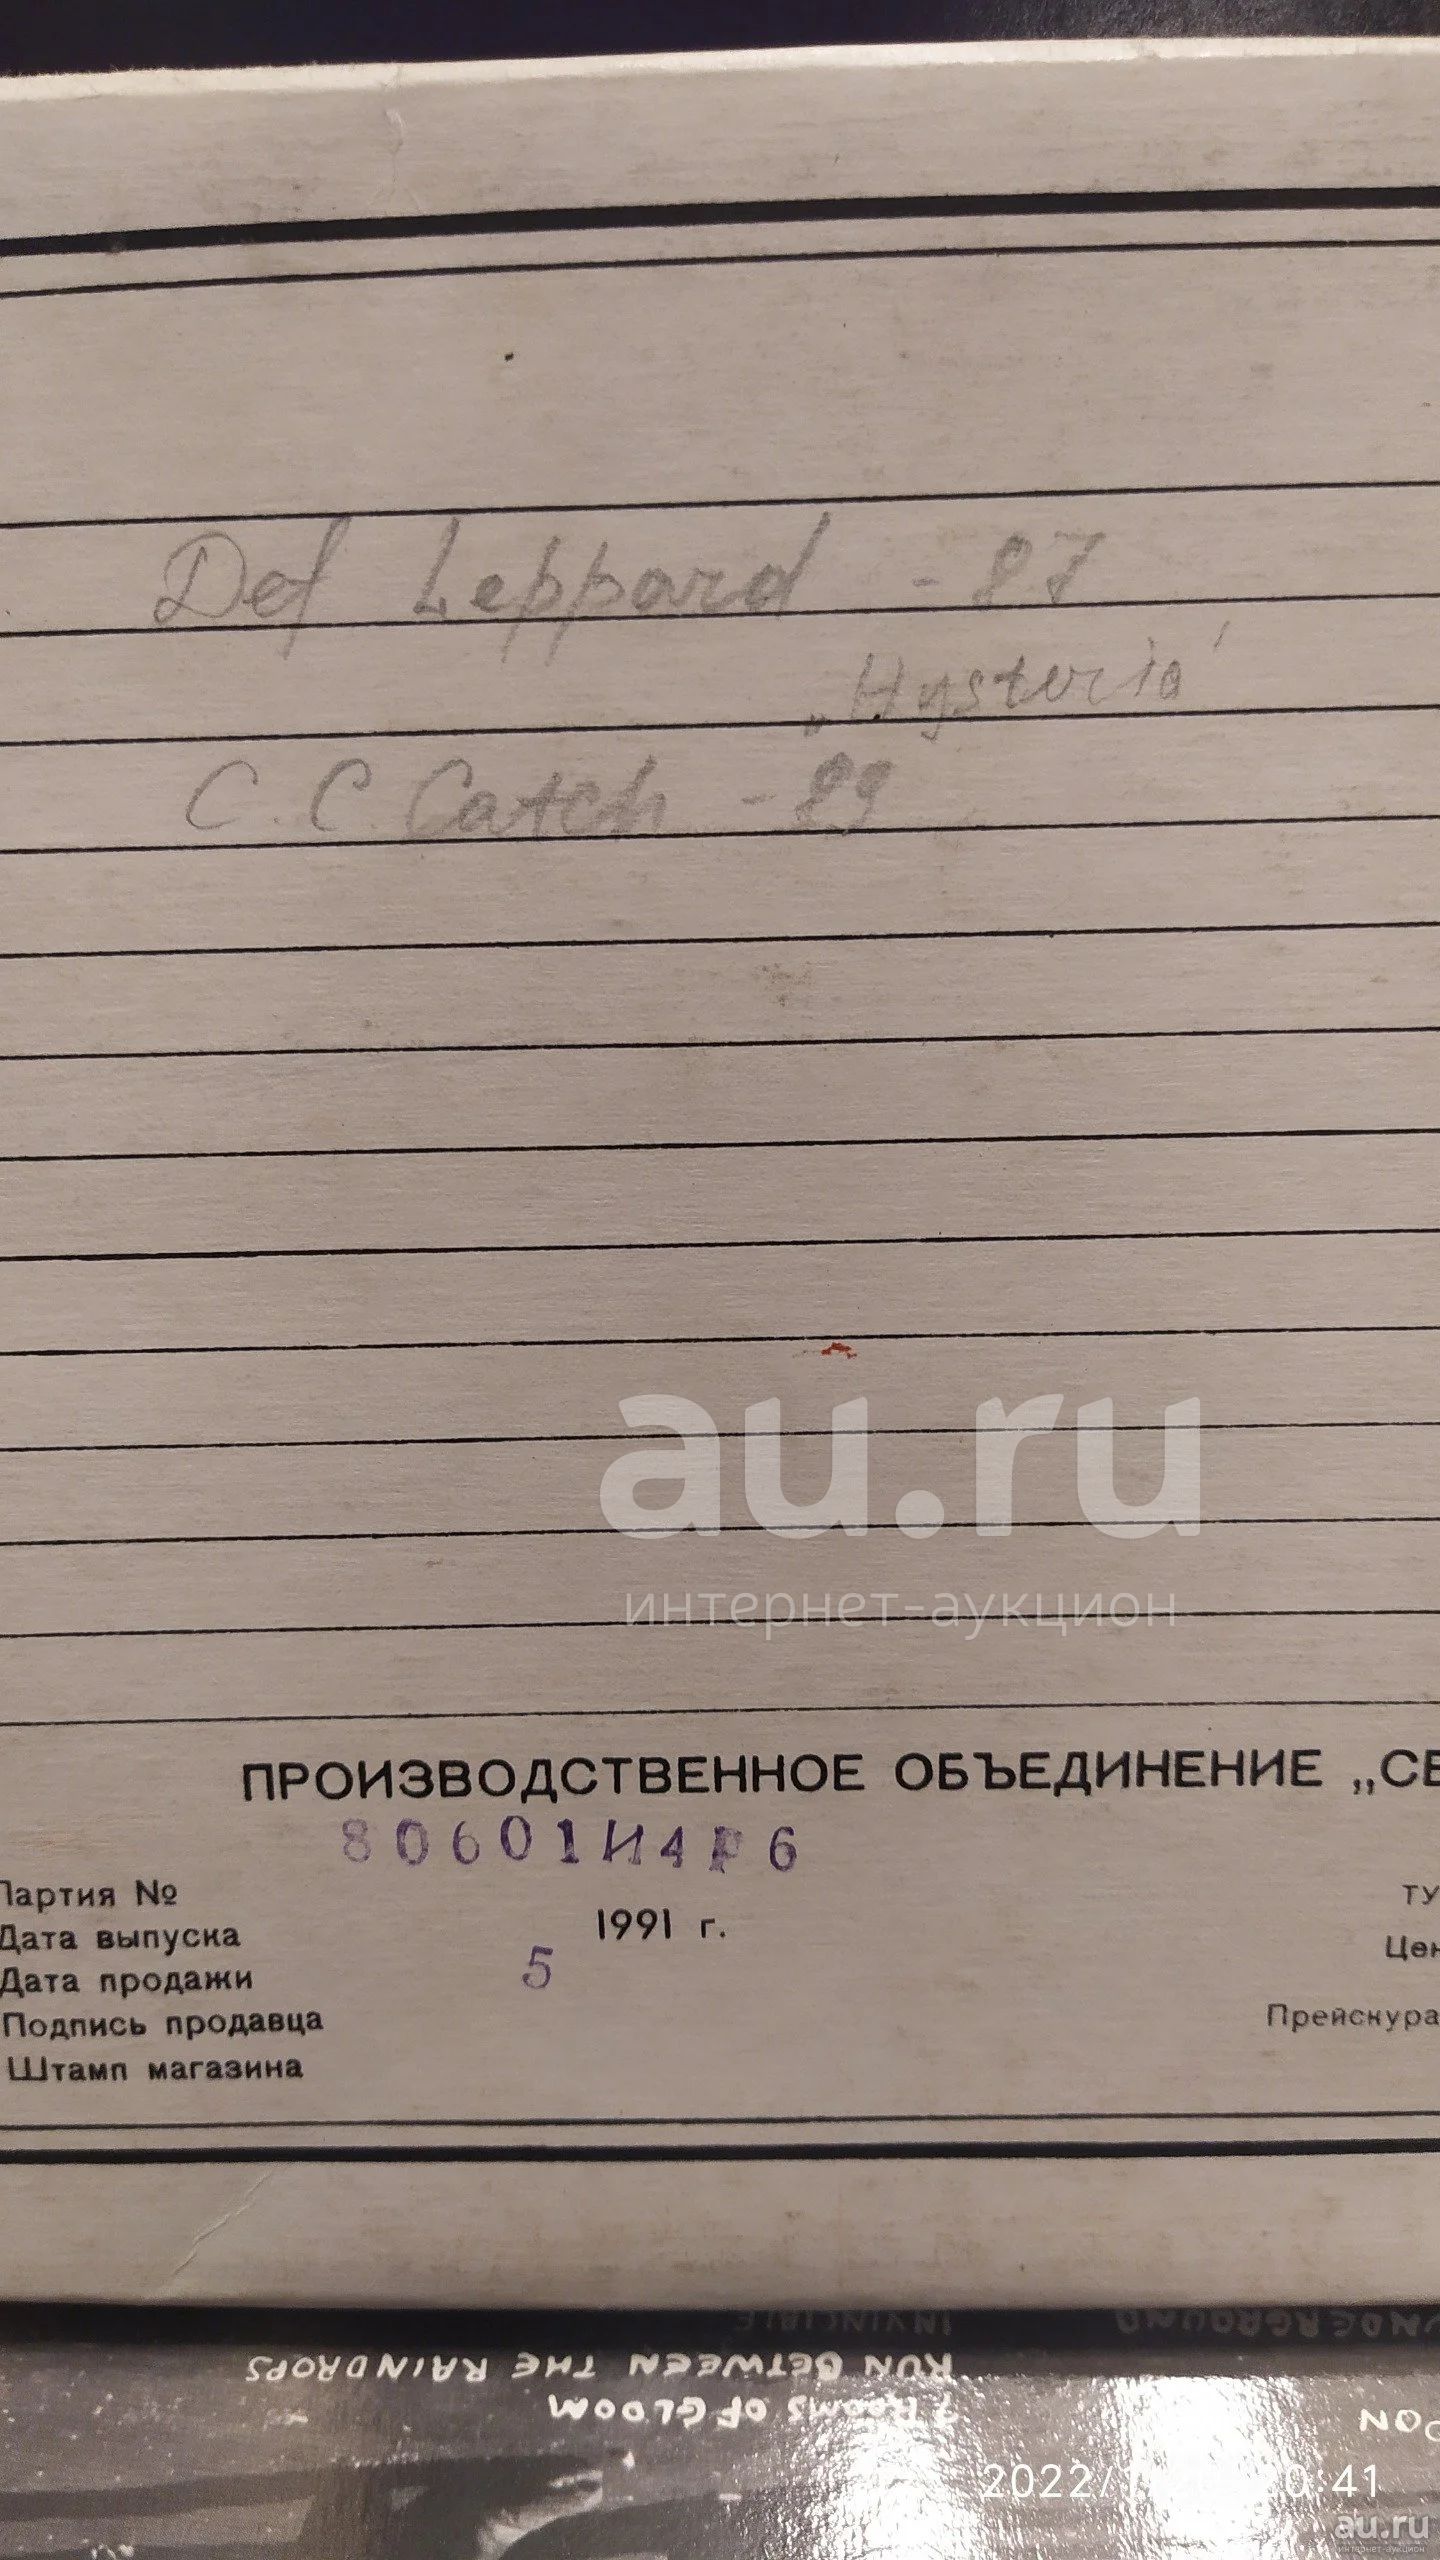 Def Leppard - 87
„Hysteria"
C. C. Catch - 89
au.ru
интернет-аукцион
ПРОИЗВОДСТВЕННОЕ ОБЪЕДИНЕНИЕ „СВ
80601И4Р6
Партия №
ТУ
Дата выпуска
1991 г.
Цен
Дата продажи
5
Подпись продавца
Прейскура
Штамп магазина
UNDERGROUND
INVINCIBLE
RUN BETWEEN THE RAINDROPS
7 ROOMS OF GLOOM
2022/1 20:41
au.ru
интернет-аукцион